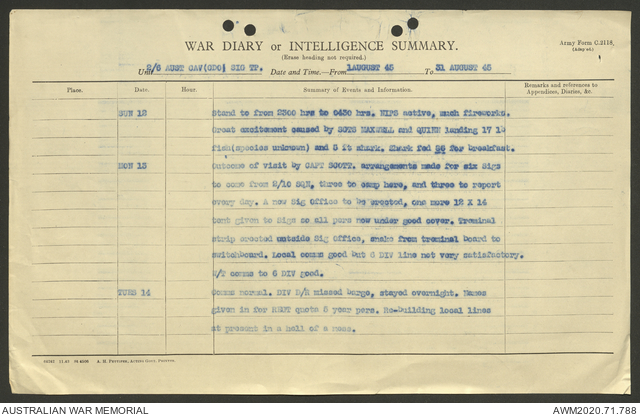 WAR DIARY or INTELLIGENCE SUMMARY.
Army Form C.2118.
(Erase heading not required.)
Unit 2/6 AUST CAV(CDO) SIG TP. Date and Time.—From 1AUGUST 45 To 31 AUGUST 45
Place. Date. Hour. Summary of Events and Information. Remarks and references to Appendices, Diaries, &c.
SUN 12 Stand to from 2300 hrs to 0430 hrs. NIPS active, much fireworks.
Great excitement caused by SGTS MAXWELL and landing 17 lb
fish(species unknown) and 5 ft shark. Shark fed 96 for breakfast.
MON 13 Outcome of visit by CAPT SCOTT. arrangements made for six Sigs
to come from 2/10 SQN, three to camp here, and three to report
every day. A new Sig Office to be erected, one more 12 X 14
tent given to Sigs so all pers now under good cover. Treminal
strip erected outside Sig Office, snake from treminal board to
switchboard. Local comms good but 6 DIV line not very satisfactory.
R/T comms to 6 DIV good.
TUES 14 Comms normal. DIV D/R missed barge, stayed overnight. Names
given in for REPT quota 5 year pers. Re-building local lines
at present in a hell of a mess.
AUSTRALIAN WAR MEMORIAL
AWM2020.71.788